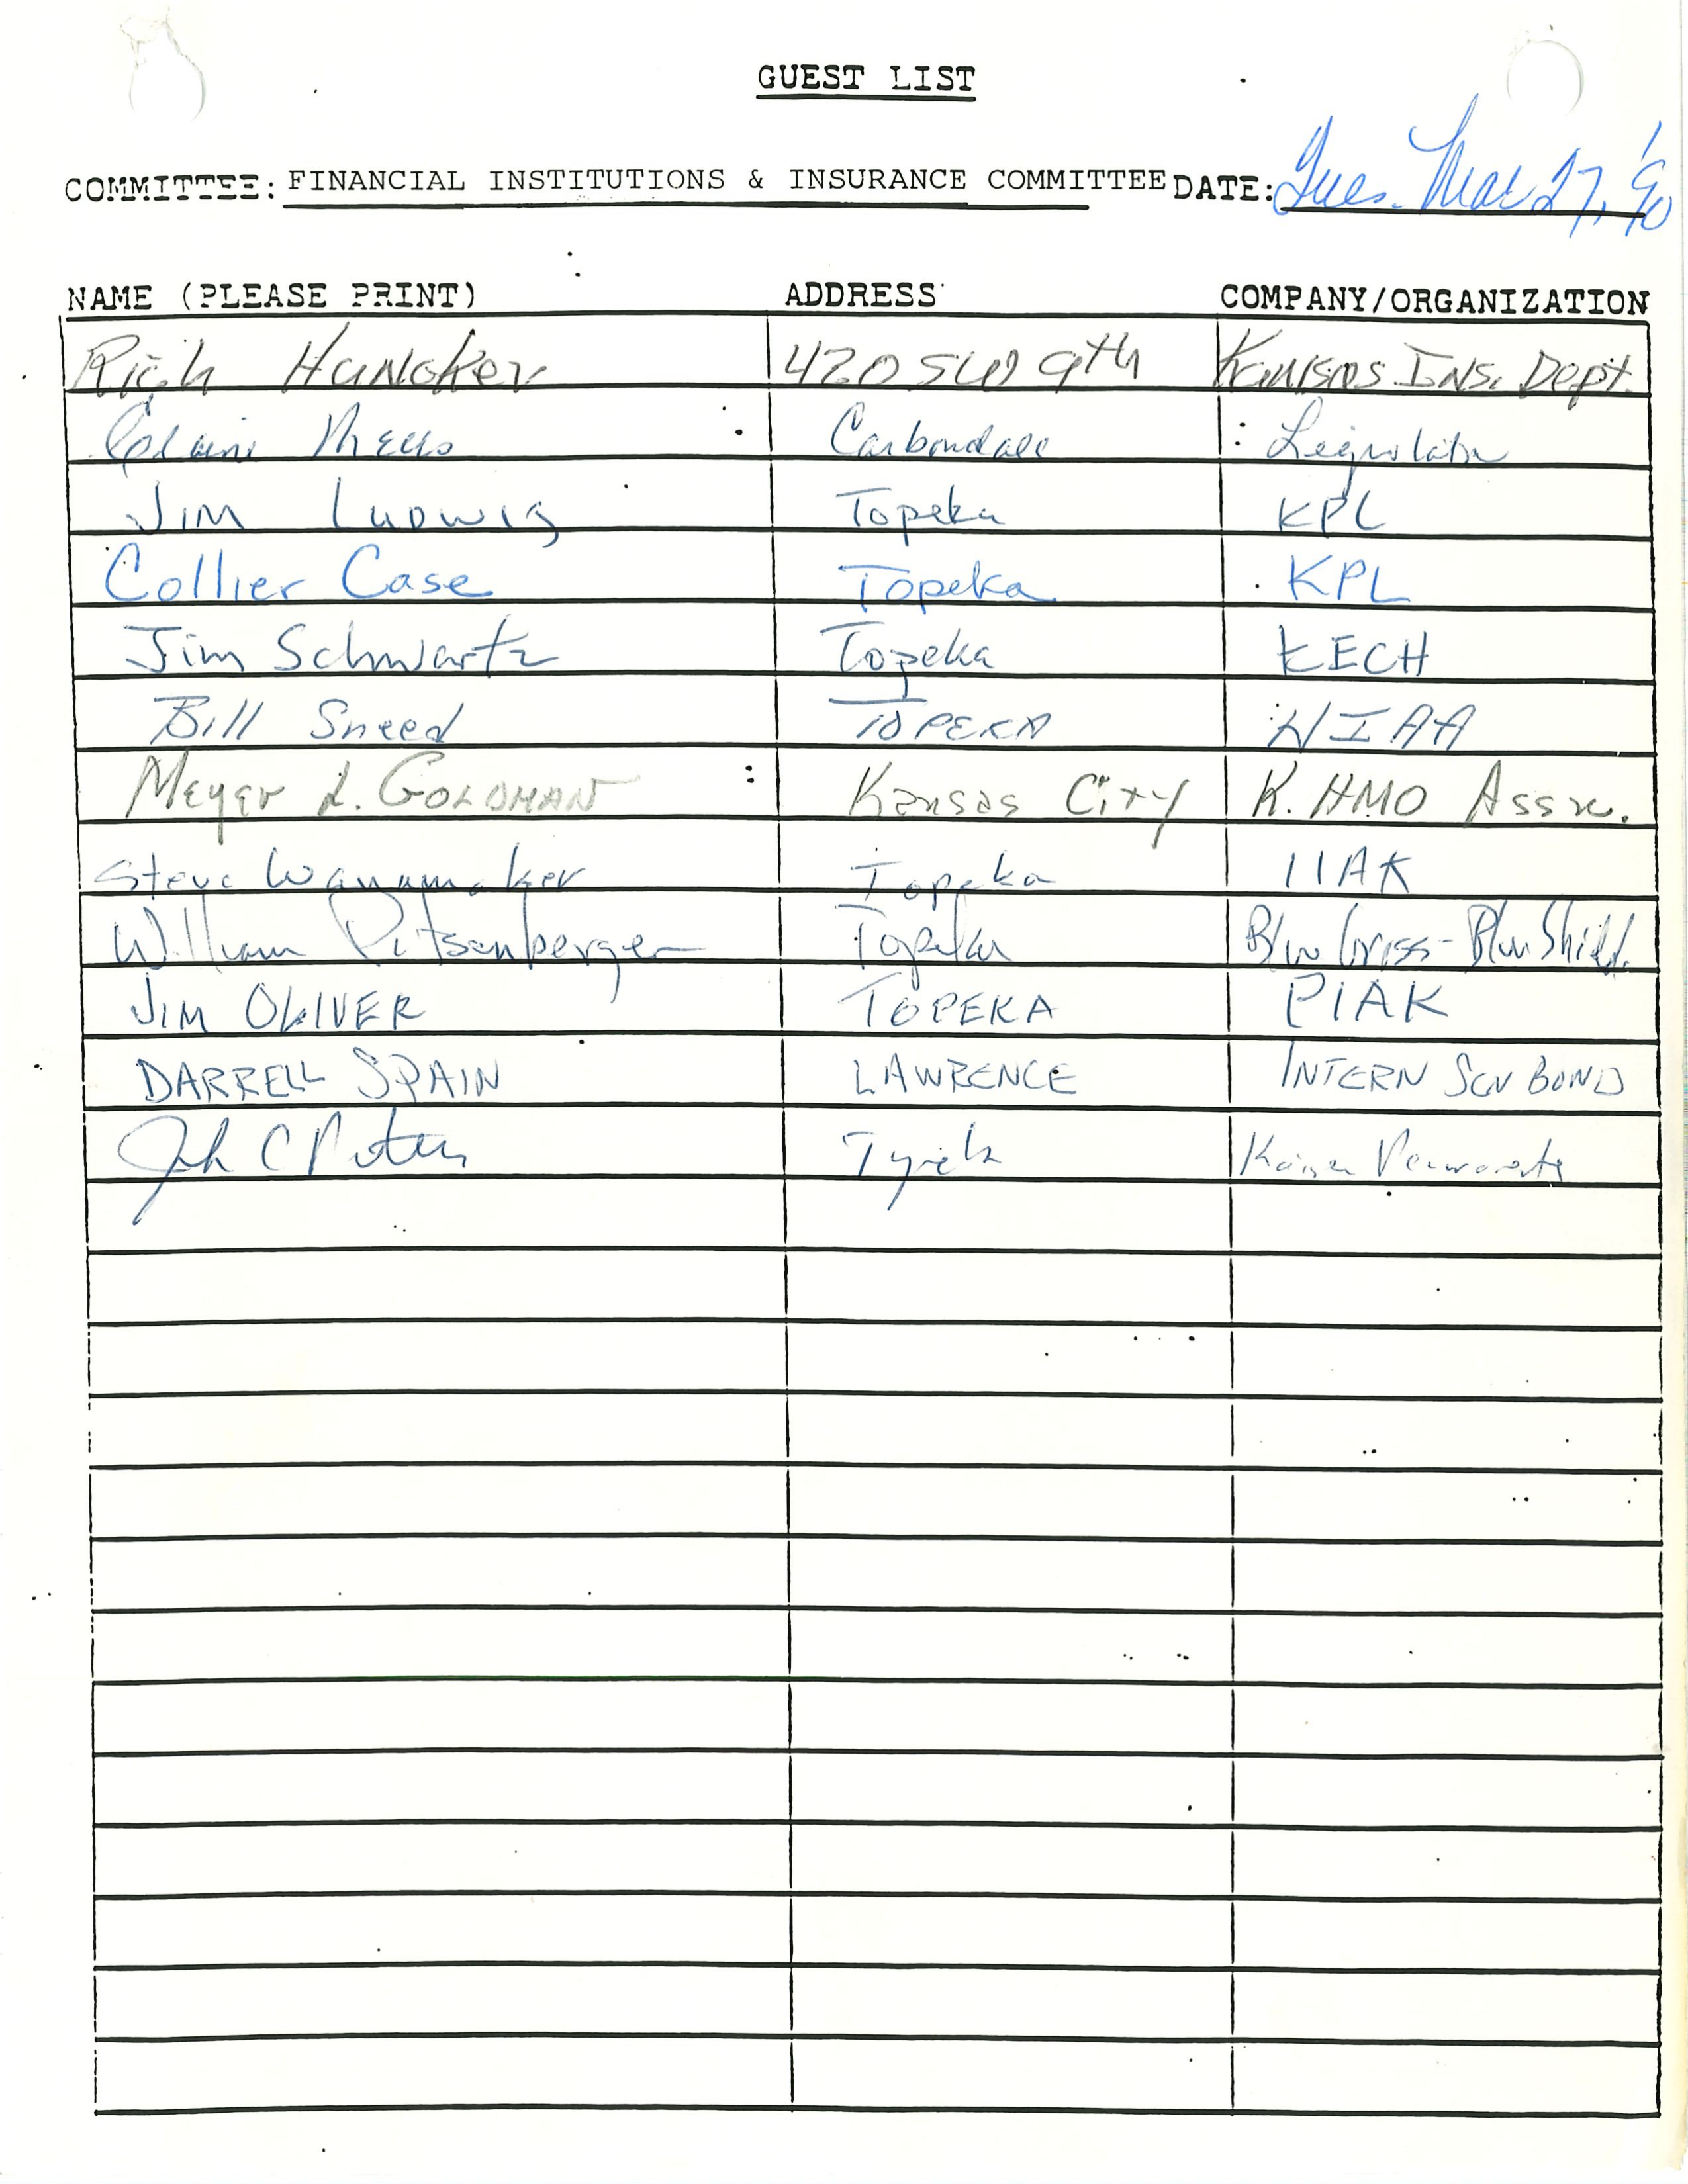 GUEST LIST
COMMITTEE: FINANCIAL INSTITUTIONS & INSURANCE COMMITTEE DATE: Tues. Mar 27, '90
NAME (PLEASE PRINT) ADDRESS COMPANY/ORGANIZATION
Rich Huncker 420 SW 9th Kansas Ins. Dept.
Carbondale Legislator
Jim Ludwig Topeka KPL
Collier Case Topeka KPL
Jim Schwartz Topeka KECH
Bill Sneed TOPEKA HIAA
Meyer L. GOLDMAN Kansas City K. HMO Assn.
Steve Wanamaker Topeka IIAK
William Pitsenberger Topeka Blue Cross-Blue Shield
JIM OLIVER TOPEKA PIAK
DARRELL SPAIN LAWRENCE INTERN SEN BOND
John C Topeka Kaiser Permanente